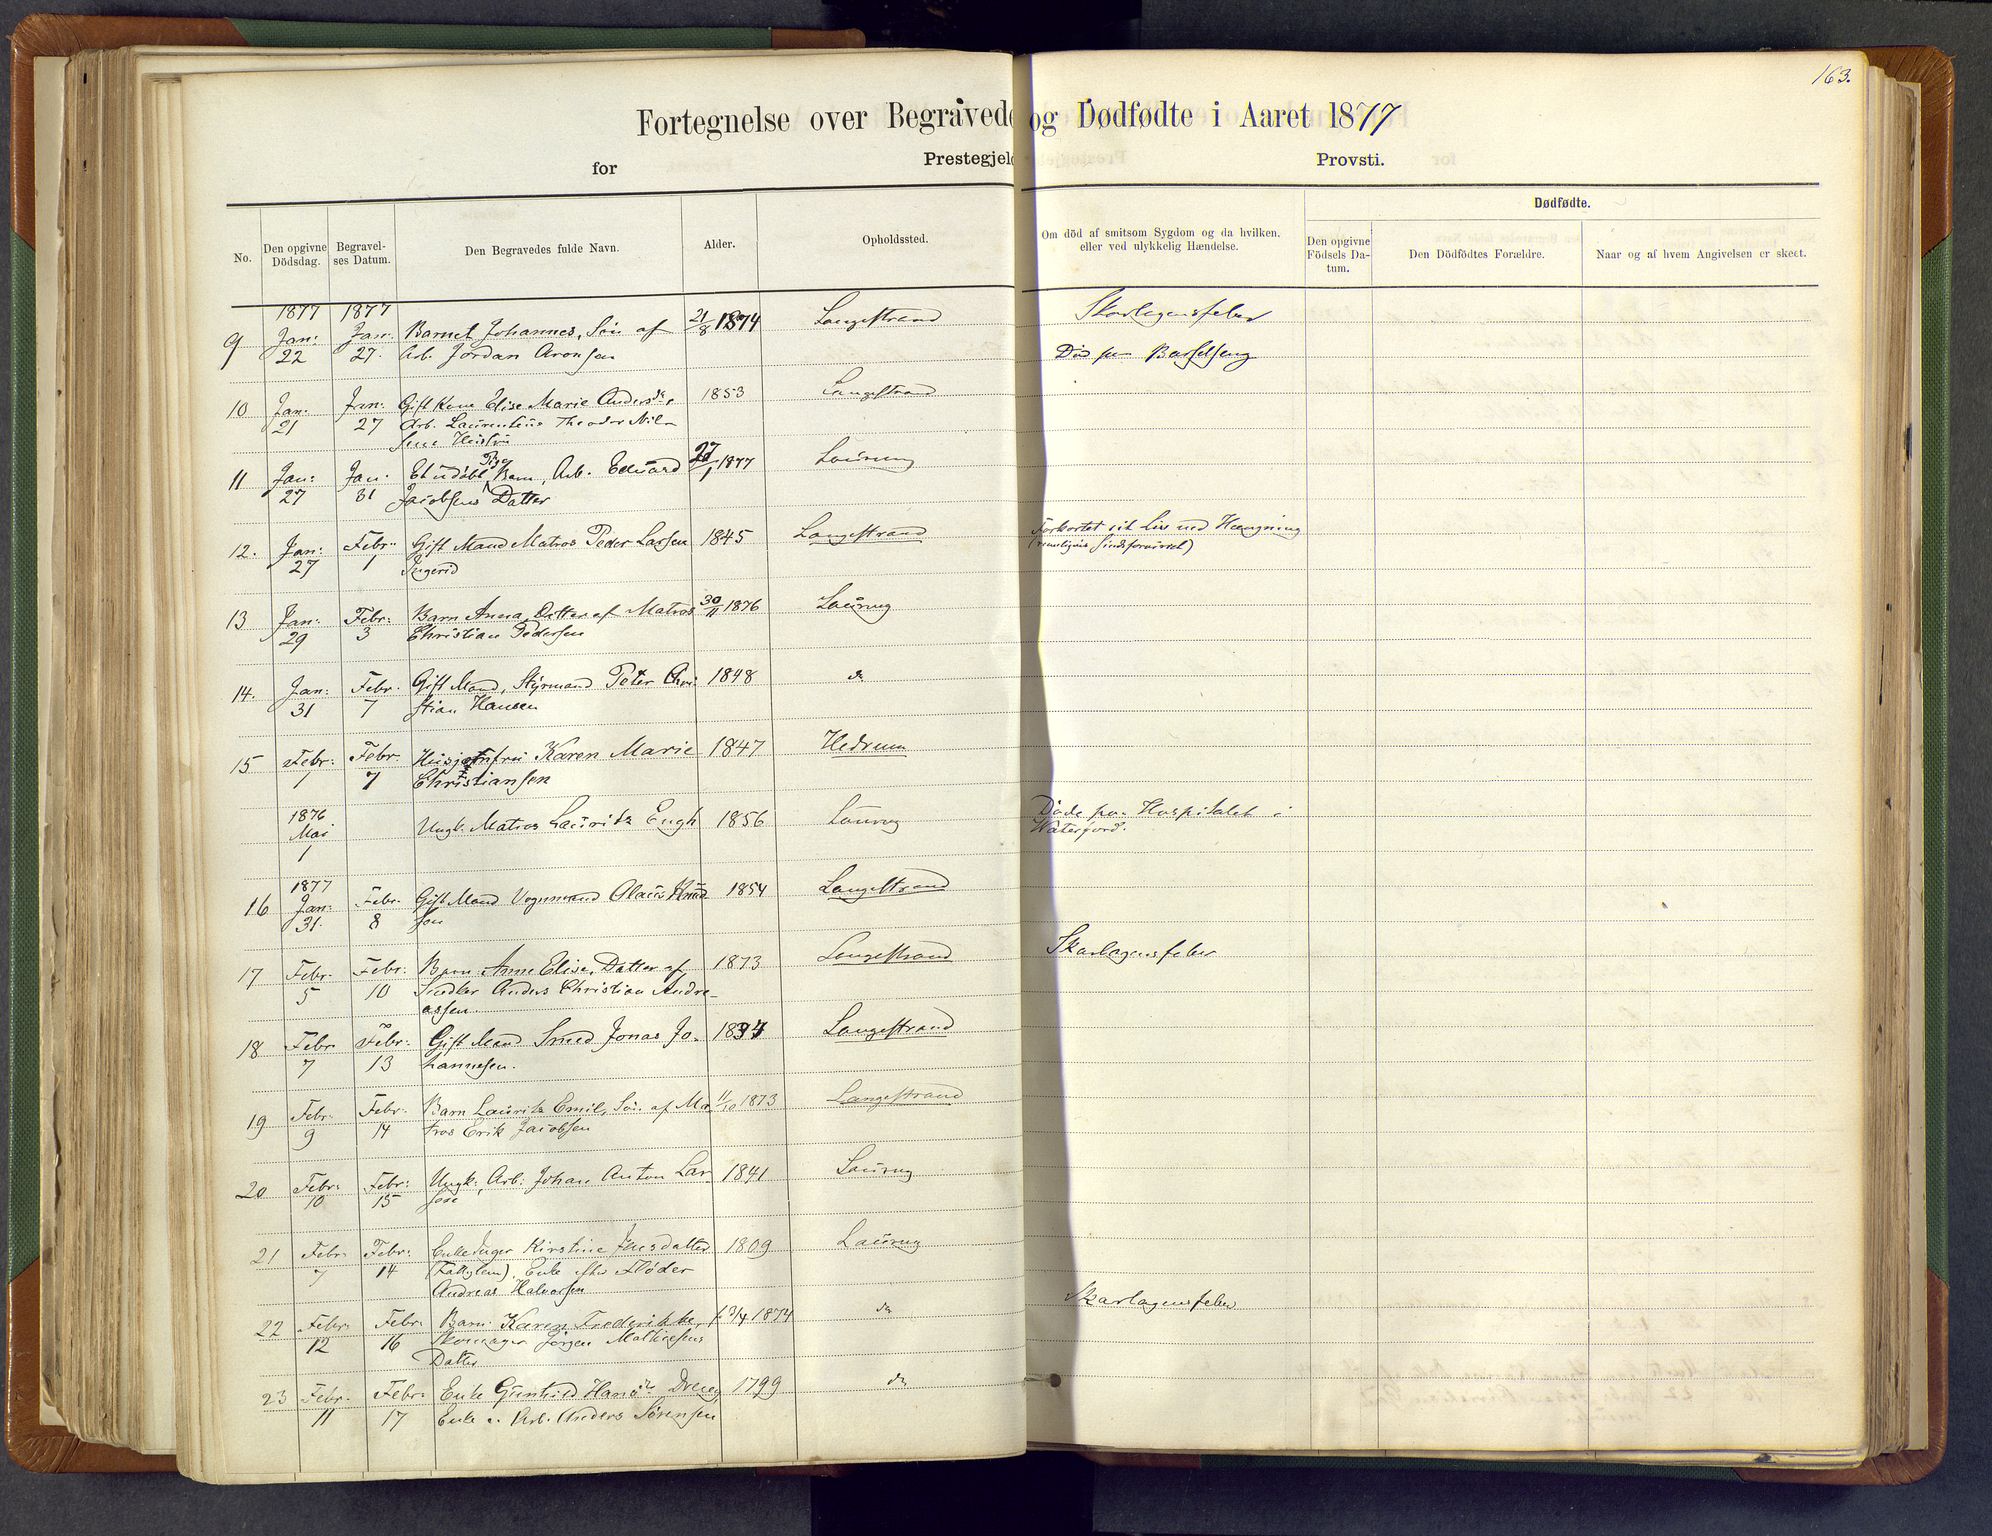 163.
Fortegnelse over Begravede og Dødfødte i Aaret 1877
for Prestegjeld Provsti.
No. Den opgivne Dödsdag. Begravel-ses Datum. Den Begravedes fulde Navn. Alder. Opholdssted. Om död af smitsom Sygdom og da hvilken, eller ved ulykkelig Hændelse. Dødfødte.
Den opgivne Födsels Da-tum. Den Dödfödtes Forældre. Naar og af hvem Angivelsen er skeet.
1877 1877
9 Jan: Jan: Barnet Johannes, Sön af 21/8 1874 Langestrand Skarlagensfeber
22 27. Arb. Jordan Aronsen Död paa Barselseng
10 Jan: Jan: Gift Kone Elise Marie Andersdr, 1853 Langestrand
21 27 Arb. Laurentius Theodor Nil-
sens Hustru
11 Jan: Jan: Et udöbt Pige Barn, Arb. Eduard 27/1 1877 Laurvig
27 31 Jacobsens Datter
12. Jan: Febr: Gift Mand Matros Peder Larsen 1845 Langestrand Forkortet sit Liv ved Hængning
27 1 Ingerid (rimeligvis Sindsforvirret)
13 Jan: Febr: Barn Anna, Datter af Matros 30/11 1876 Laurvig
29 3 Christian Pedersen
14. Jan: Febr. Gift Mand, Styrmand Peter Chri- 1848 do
31 7 stian Hansen
15 Febr: Febr. Huusjomfru Karen Marie 1847 Hedrum
1 7 Christiansen
1876
Mai Ungk. Matros Lauritz Engh 1856 Laurvig Döde paa Hospitalet i
1 Waterford.
1877
16 Jan: Febr. Gift Mand Vognmand Olaus Knud- 1854 Langestrand
31. 8 sen
17 Febr. Febr. Barn Anne Elise, Datter af 1873 Langestrand Skarlagensfeber
5 10 Snedker Anders Christian Andre-
assen.
18 Febr Febr: Gift Mand Smed Jonas Jo- 1834 Langestrand
7 13 hannesen.
19 Febr. Febr. Barn Lauritz Emil, Sön af Ma- 11/10 1873 Langestrand
9 14 tros Erik Jacobsen
20 Febr: Febr: Ungk: Arb. Johan Anton Lar- 1841 Laurvig
10 15 sen
21 Febr. Febr: Enke Inger Kirstine Jensdatter 1809 Laurvig
7 14 (Fattiglem), Enke efter Flöder
Andreas Halvorsen
22 Febr: Febr: Barn Karen Frederikke, f 3/4 1874 do Skarlagensfeber
12 16 Skomager Jörgen Mathiesens
Datter
23 Febr. Febr: Enke Gunhild Hansdr 1799 do
11 17 Enke e. Arb. Anders Sörensen